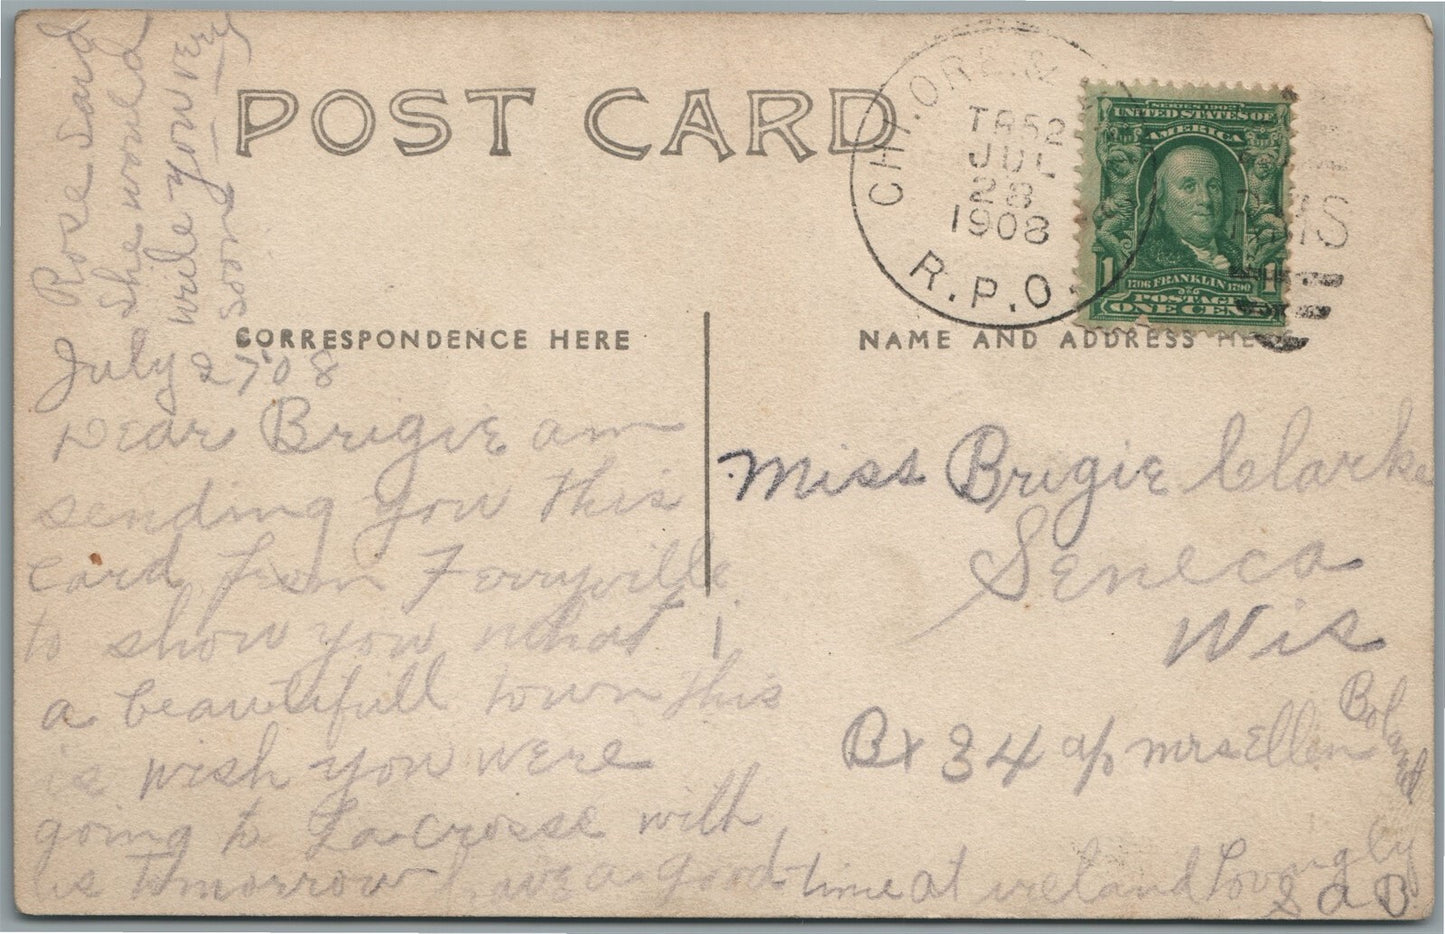 Rose said
she would
write you very
soon
POST CARD
CHI. ORE. &
TR 52
JUL
28
1908
R.P.O.
RMS
SERIES 1902
UNITED STATES OF
AMERICA
1
1706 FRANKLIN 1790
1
POSTAGE
ONE CENT
CORRESPONDENCE HERE
NAME AND ADDRESS HERE
July 27 '08
Dear Brigie am
sending you this
card from Ferryville
to show you what
a beautifull town this
is wish you were
going to La crosse with
us tomorrow have a good time at ireland Lovingly
S a B
Miss Brigie Clark
Seneca
Wis
Bx 34 c/o mrs Ellen Boland